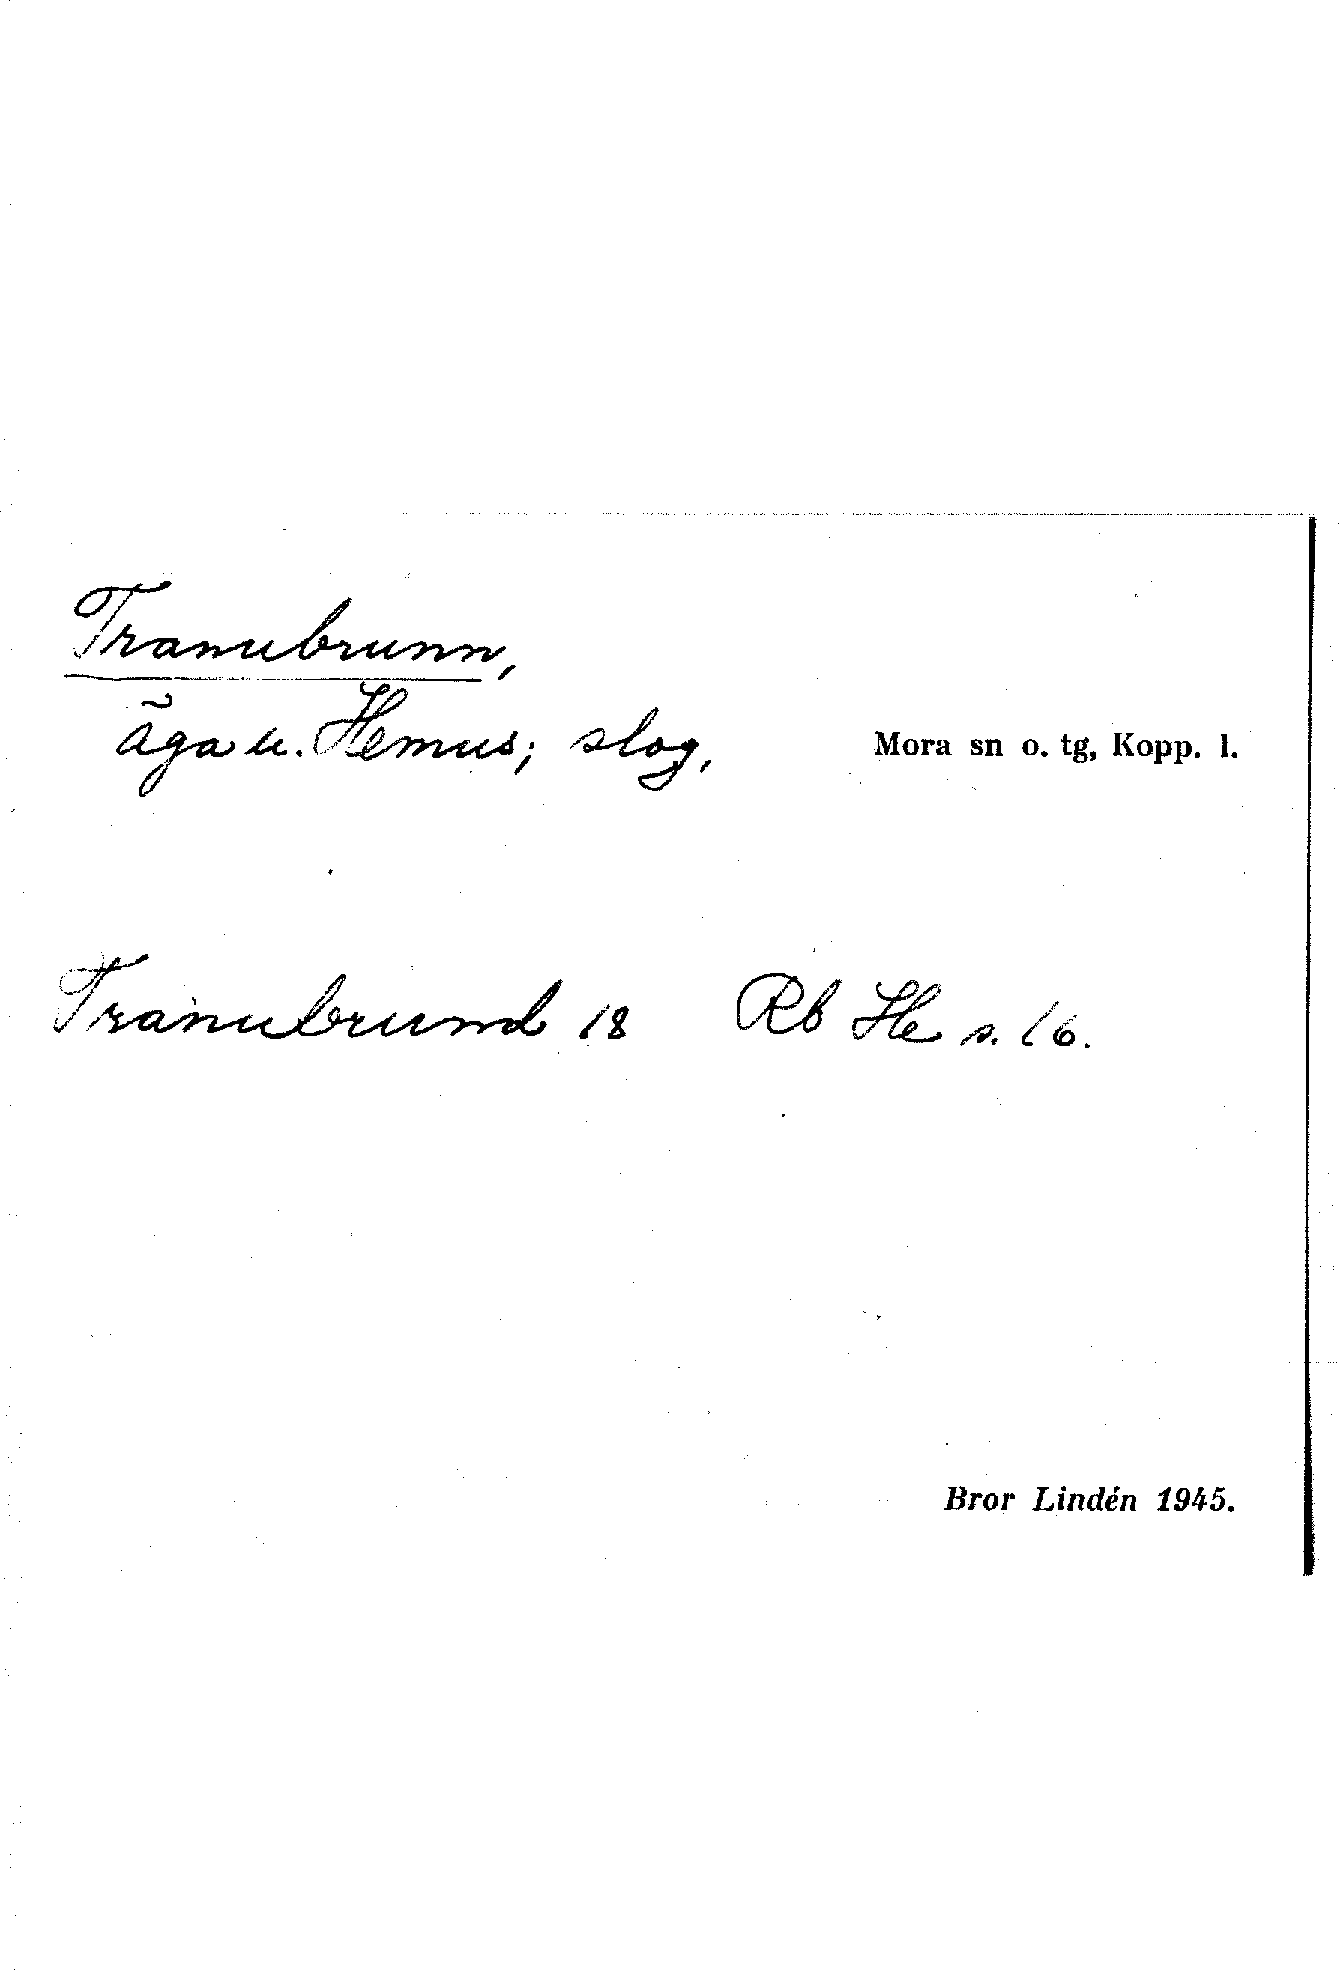 Tranubrunn,
äga u. Hemus; slog,
Mora sn o. tg, Kopp. l.
Tranubrund 18 Rb He s. 16.
Bror Lindén 1945.